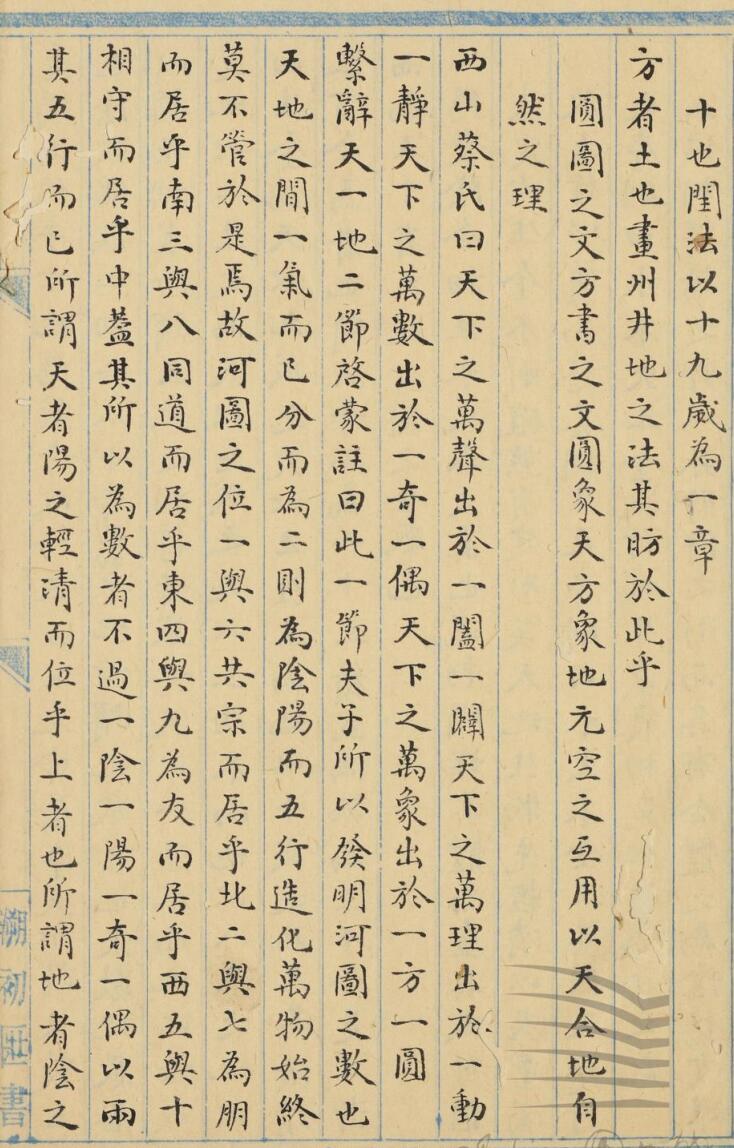 十也閏法以十九歲為一章
方者土也畫州井地之法其昉於此乎
圓圖之文方書之文圓象天方象地元空之互用以天合地自
然之理
西山蔡氏曰天下之萬聲出於一闔一闢天下之萬理出於一動
一靜天下之萬數出於一奇一偶天下之萬象出於一方一圓
繫辭天一地二節啓蒙註曰此一節夫子所以發明河圖之數也
天地之間一氣而已分而為二則為陰陽而五行造化萬物始終
莫不管於是焉故河圖之位一與六共宗而居乎北二與七為朋
而居乎南三與八同道而居乎東四與九為友而居乎西五與十
相守而居乎中蓋其所以為數者不過一陰一陽一奇一偶以兩
其五行而已所謂天者陽之輕清而位乎上者也所謂地者陰之
溯初
書